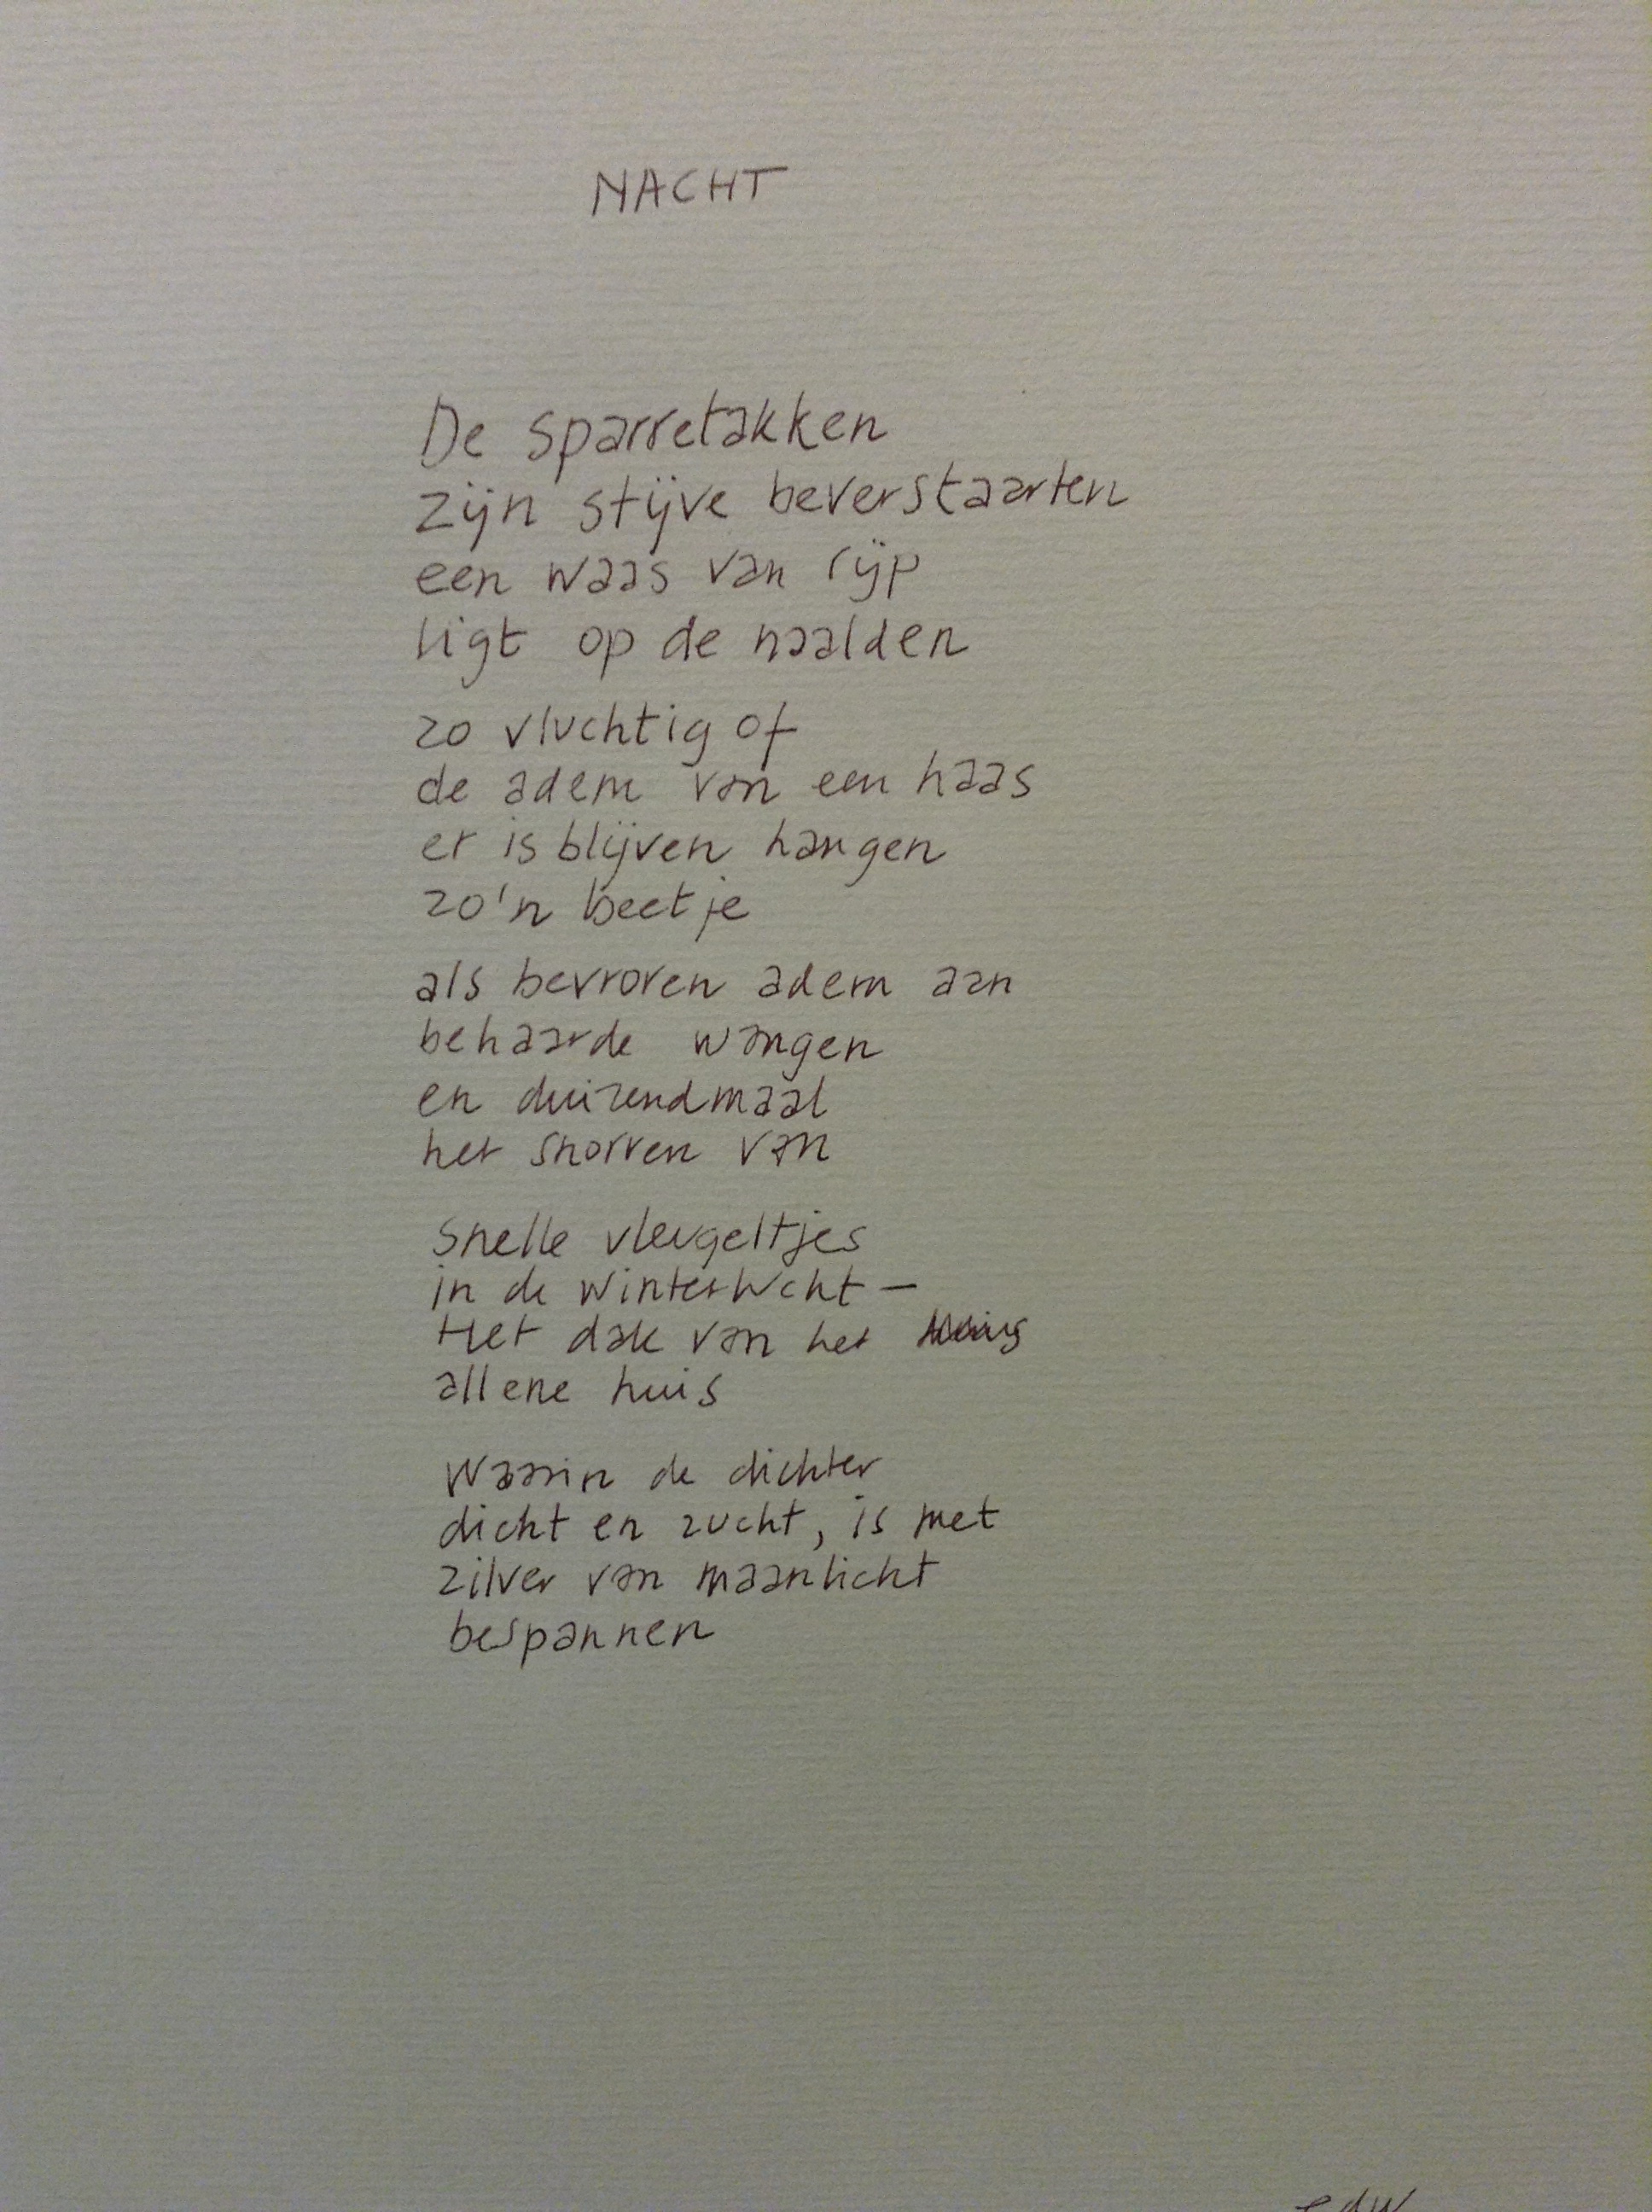 NACHT
De sparretakken
zijn stijve beverstaarten
een waas van rijp
ligt op de naalden
zo vluchtig of
de adem van een haas
er is blijven hangen
zo'n beetje
als bevroren adem aan
behaarde wangen
en duizendmaal
het snorren van
snelle vleugeltjes
in de winterlucht —
Het dak van het
allene huis
Waarin de dichter
dicht en zucht, is met
zilver van maanlicht
bespannen
edw